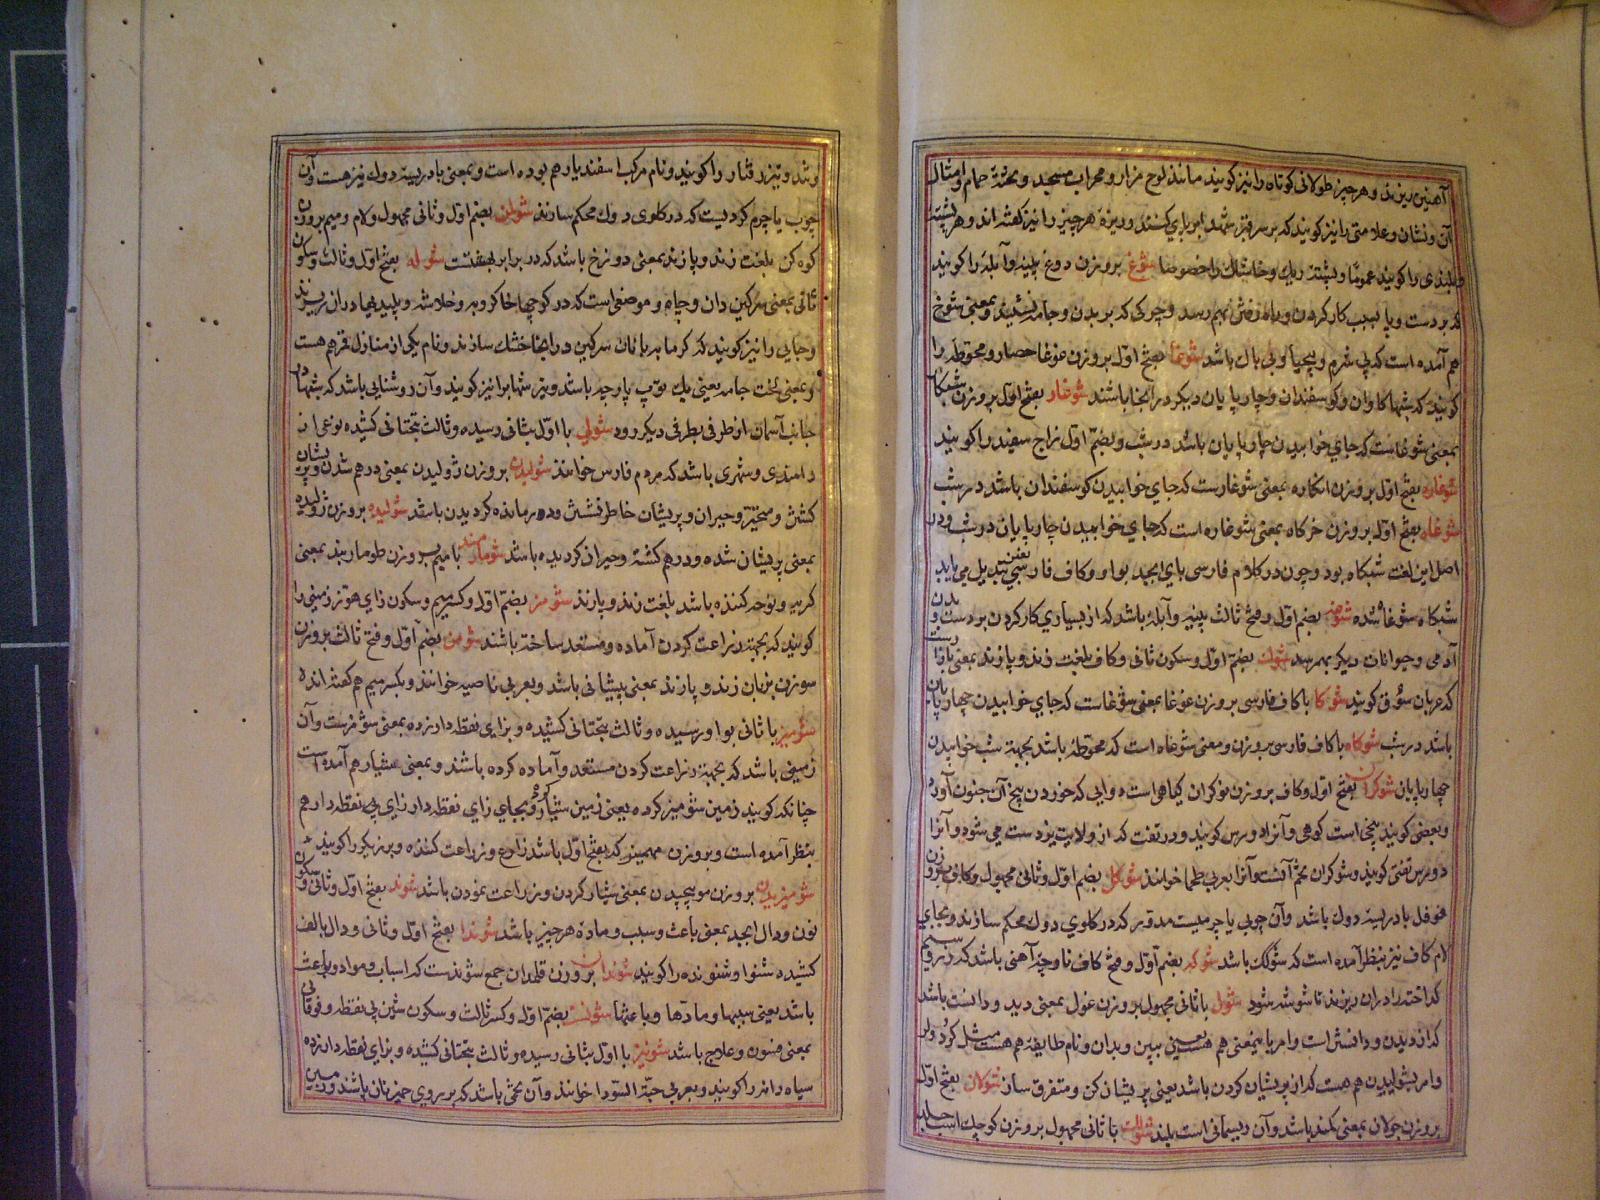 آهنین ریزند و هر چیز طولانی کوتاه را نیز گویند مانند لوح مزار و محراب مسجد و تختهٔ حمام و امثال
آن و نشان و علامتی را نیز گویند که بر سر قبر شهدا بر پای کنند و ریزهٔ هر چیز را نیز گفته اند و هر پشته
و بلندی را گویند عموما و پشتهٔ ریك و خاشاك را خصوصا شوغ بر وزن دوغ پینه و آبله را گویند
که بر دست و پا بسبب کار کردن و راه رفتن بهم رسد و چرکی که بر بدن و جامه نشیند و بمعنی شوخ
هم آمده است که بی شرم و بیحیا و بی باك باشد شوغا بفتح اول بر وزن غوغا حصار و محوطهٔ را
گویند که شبها کاوان و کوسفندان و چارپایان دیکر در آنجا باشند شوغار بفتح اول بر وزن شبکار
بمعنی شوغاست که جای خوابیدن چارپایان باشد در شب و بضم اول زاج سفید را گویند
شوغاره بفتح اول بر وزن انکاره بمعنی شوغارست که جای خوابیدن کوسفندان باشد در شب
شوغاه بفتح اول بر وزن خرکاه بمعنی شوغاره است که جای خوابیدن چارپایان در شب و در
اصل این لغت شبکاه بود و چون در کلام فارسی بای ابجد بواو و کاف فارسی بغین تبدیل می یابد
شبکاه شوغاه شده شوغه بضم اول و فتح ثالث پینه و آبله باشد که از بسیاری کار کردن بر دست و بدن
آدمی و حیوانات دیکر بهم رسد شوك بضم اول و سکون ثانی و کاف بلغت زند و پازند بمعنی بازار است
که عربان سوق گویند شوکا با کاف فارسی بر وزن غوغا بمعنی شوغاست که جای خوابیدن چهارپایان
باشد در شب شوکاه با کاف فارسی بر وزن و معنی شوغاه است که محوطهٔ باشد بجهة شب خوابیدن
چهارپایان شوکران بفتح اول و کاف بر وزن نوکران کیاهی است دوایی که خوردن بیخ آن جنون آورد
و بعضی گویند بیخی است کوهی و آنرا دورس گویند و در تفت که از ولایت یزدست می شود و آنرا
دورس تفتی گویند و شوکران تخم آنست و آنرا بعربی طحما خوانند شوکل بضم اول و ثانی مجهول و کاف بر وزن
فوفل بادریسهٔ دوك باشد و آن چوبی یا چرمیست مدور که در کلوی دوك محکم سازند و بجای
لام کاف نیز بنظر آمده است که شوکك باشد شوکه بضم اول و فتح کاف ناوچهٔ آهنی باشد که زر و سیم
کداخته را در آن ریزند تا شوشه شود شول با ثانی مجهول بر وزن غول بمعنی دید و دانست باشد
که از دیدن و دانستن است و امر باینمعنی هم هست یعنی ببین و بدان و نام طایفه هم هست مثل کرد و لر
و امر بشولیدن هم هست که از پریشان کردن باشد یعنی پریشان کن و متفرق ساز شولان بفتح اول
بر وزن جولان بمعنی کمند باشد و آن ریسمانی است بلند شولك با ثانی مجهول بر وزن کوچك اسب جلد
و تند و تیز رفتار را گویند و نام مرکب اسفندیار هم بوده است و بمعنی بادریسهٔ دوك نیز هست و آن
چوب یا چرم کردیست که در کلوی دوك محکم سازند شولمن بضم اول و ثانی مجهول و لام و میم بر وزن
کوه کن بلغت زند و پازند بمعنی دوزخ باشد که در برابر بهشتست شوله بفتح اول و ثالث و سکون
ثانی بمعنی سرکین دان و چاه و موضعی است که در کوچها خاکروبه و خلاشه و پلیدیها در آن ریزند
و جایی را نیز گویند که کرمابه بانان سرکین در آنجا خشك سازند و نام یکی از منازل قمر هم هست
و بمعنی لخت جامه یعنی یك توپ پارچه باشد و تیر شهاب را نیز گویند و آن روشنایی باشد که شبها در
جانب آسمان از طرفی بطرفی دیکر رود شولی با اول بثانی رسیده و ثالث بتحتانی کشیده نوعی از
دامندی و شهری باشد که مردم فارس خوانند شولیدن بر وزن ژولیدن بمعنی در هم شدن و پریشان
کشتن و متحیر و حیران و پریشان خاطر نشستن و درمانده کردیدن باشد شولیده بر وزن ژولیده
بمعنی پریشان شده و در هم کشته و حیران کردیده باشد شوماربند با میم بر وزن طوماربند بمعنی
کریه و نوحه کننده باشد بلغت زند و پازند شومز بضم اول و کسر میم و سکون زای هوز زمینی را
گویند که بجهة زراعت کردن آماده و مستعد ساخته باشند شومن بضم اول و فتح ثالث بر وزن
سوزن بزبان زند و پازند بمعنی پیشانی باشد و بعربی ناصیه خوانند و بکسر میم هم کفته اند
شومیز با ثانی بواو رسیده و ثالث بتحتانی کشیده و بزای نقطه دار زده بمعنی شومزست و آن
زمینی باشد که بجهة زراعت کردن مستعد و آماده کرده باشند و بمعنی شیار هم آمده است
چنانکه گویند زمین شومیز کرده یعنی زمین شیار کرده و بجای زای نقطه دار رای بی نقطه دار هم
بنظر آمده است و بر وزن مهمیز که بفتح اول باشد زارع و زراعت کننده و برزیکر را گویند
شومیزیدن بر وزن موپیچیدن بمعنی شیار کردن و زراعت نمودن باشد شوند بفتح اول و ثانی و سکون
نون و دال ابجد بمعنی باعث و سبب و مادهٔ هر چیز باشد شوندا بفتح اول و ثانی و دال بالف
کشیده شنوا و شنونده را گویند شوندان بر وزن قلمدان جمع شوندست که اسباب و مواد و باعث
باشد یعنی سببها و مادها و باعثها شونست بضم اول و کسر ثالث و سکون شین بی نقطه و فوقانی
بمعنی فسون و علاج باشد شونیز با اول بثانی رسیده و ثالث بتحتانی کشیده و بزای نقطه دار زده
سیاه دانه را گویند و بعربی حبة السودا خوانند و آن تخمی باشد که بر روی خمیر نان پاشند و در همین